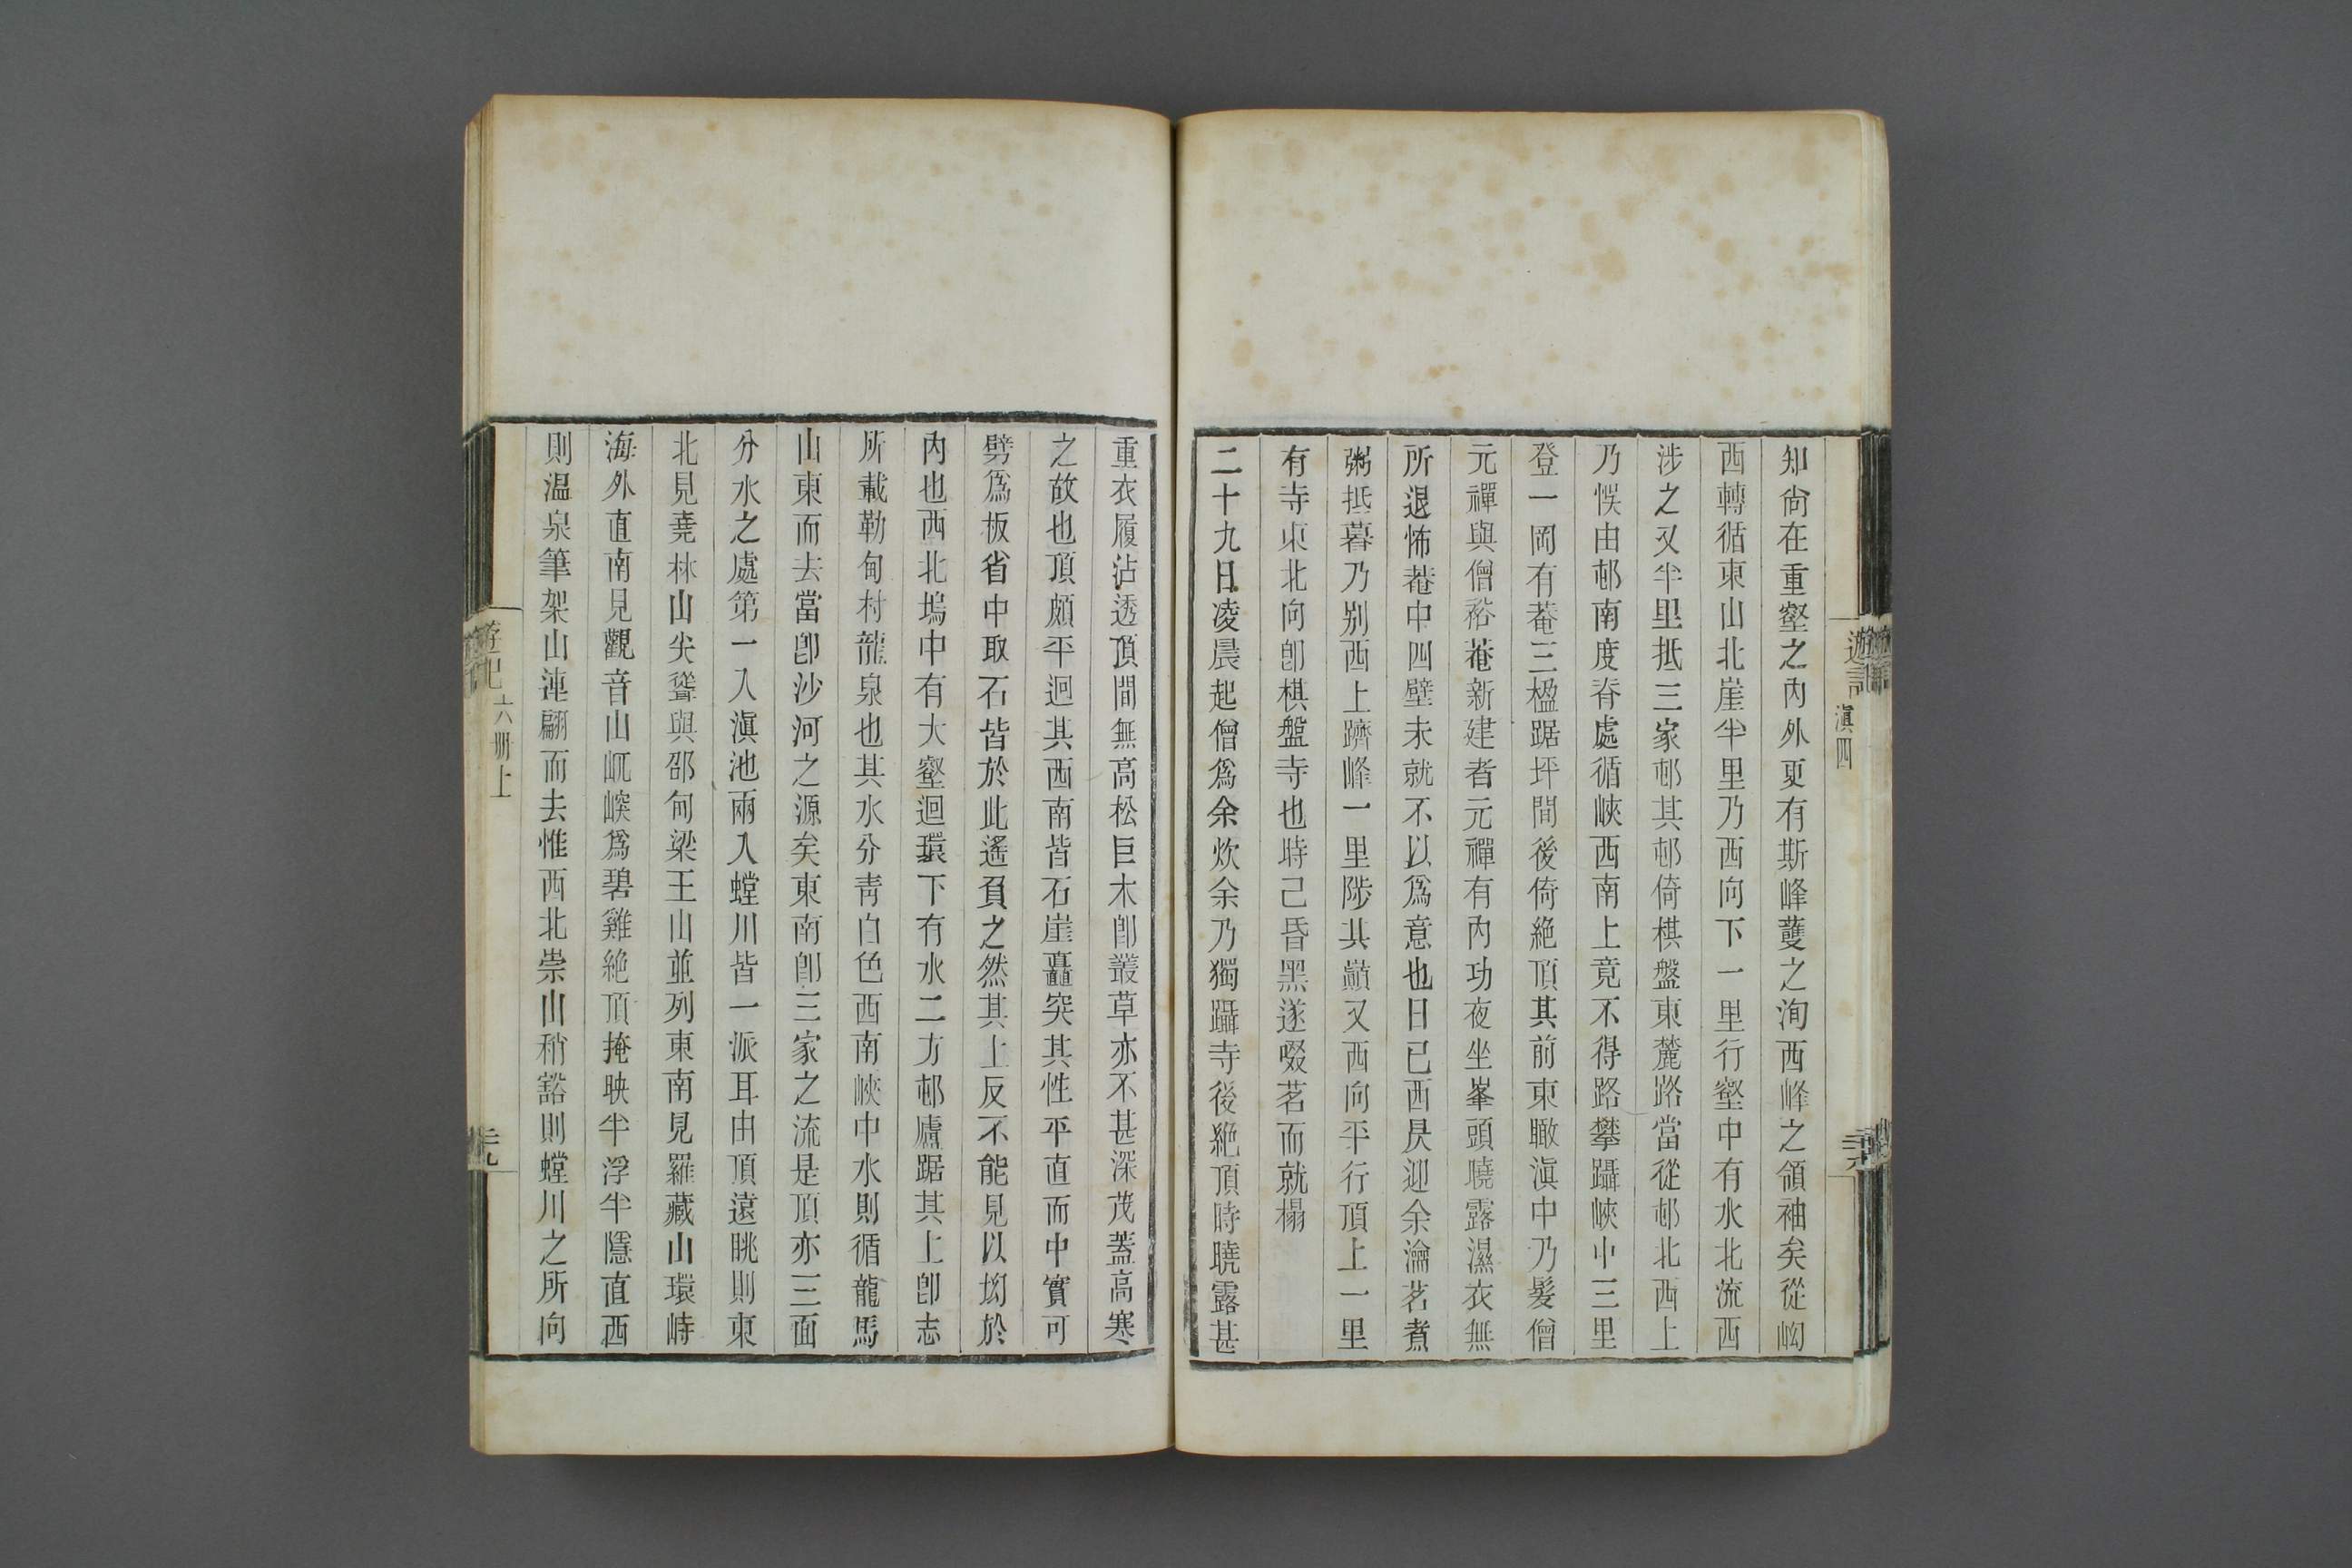 遊記 滇四
知尙在重壑之內外更有斯峰蔓之洵西峰之領袖矣從峋
西轉循東山北崖半里乃西向下一里行壑中有水北流西
涉之又半里抵三家邨其邨倚棋盤東麓路當從邨北西上
乃悞由邨南度脊處循峽西南上竟不得路攀躡峽中三里
登一岡有菴三楹踞坪間後倚絶頂其前東瞰滇中乃髮僧
元禪與僧裕菴新建者元禪有內功夜坐峯頭曉露濕衣無
所退怖菴中四壁未就不以爲意也日已西昃迎余瀹茗煮
粥抵暮乃别西上躋峰一里陟其巔又西向平行頂上一里
有寺東北向卽棋盤寺也時已昏黑遂啜茗而就榻
二十九日凌晨起僧爲余炊余乃獨躡寺後絶頂時曉露甚
重衣履沾透頂間無高松巨木卽叢草亦不甚深茂蓋高寒
之故也頂頗平迴其西南皆石崖矗突其性平直而中實可
劈爲板省中取石皆於此遙負之然其上反不能見以坳於
內也西北塢中有大壑迴環下有水二方邨廬踞其上卽志
所載勒甸村龍泉也其水分靑白色西南峽中水則循龍馬
山東而去當卽沙河之源矣東南卽三家之流是頂亦三面
分水之處第一入滇池兩入螳川皆一派耳由頂遠眺則東
北見堯林山尖聳與邵甸梁王山並列東南見羅藏山環峙
海外直南見觀音山屼嵲爲碧雞絶頂掩映半浮半隱直西
則溫泉筆架山連翩而去惟西北崇山稍豁則螳川之所向
遊記 六册上